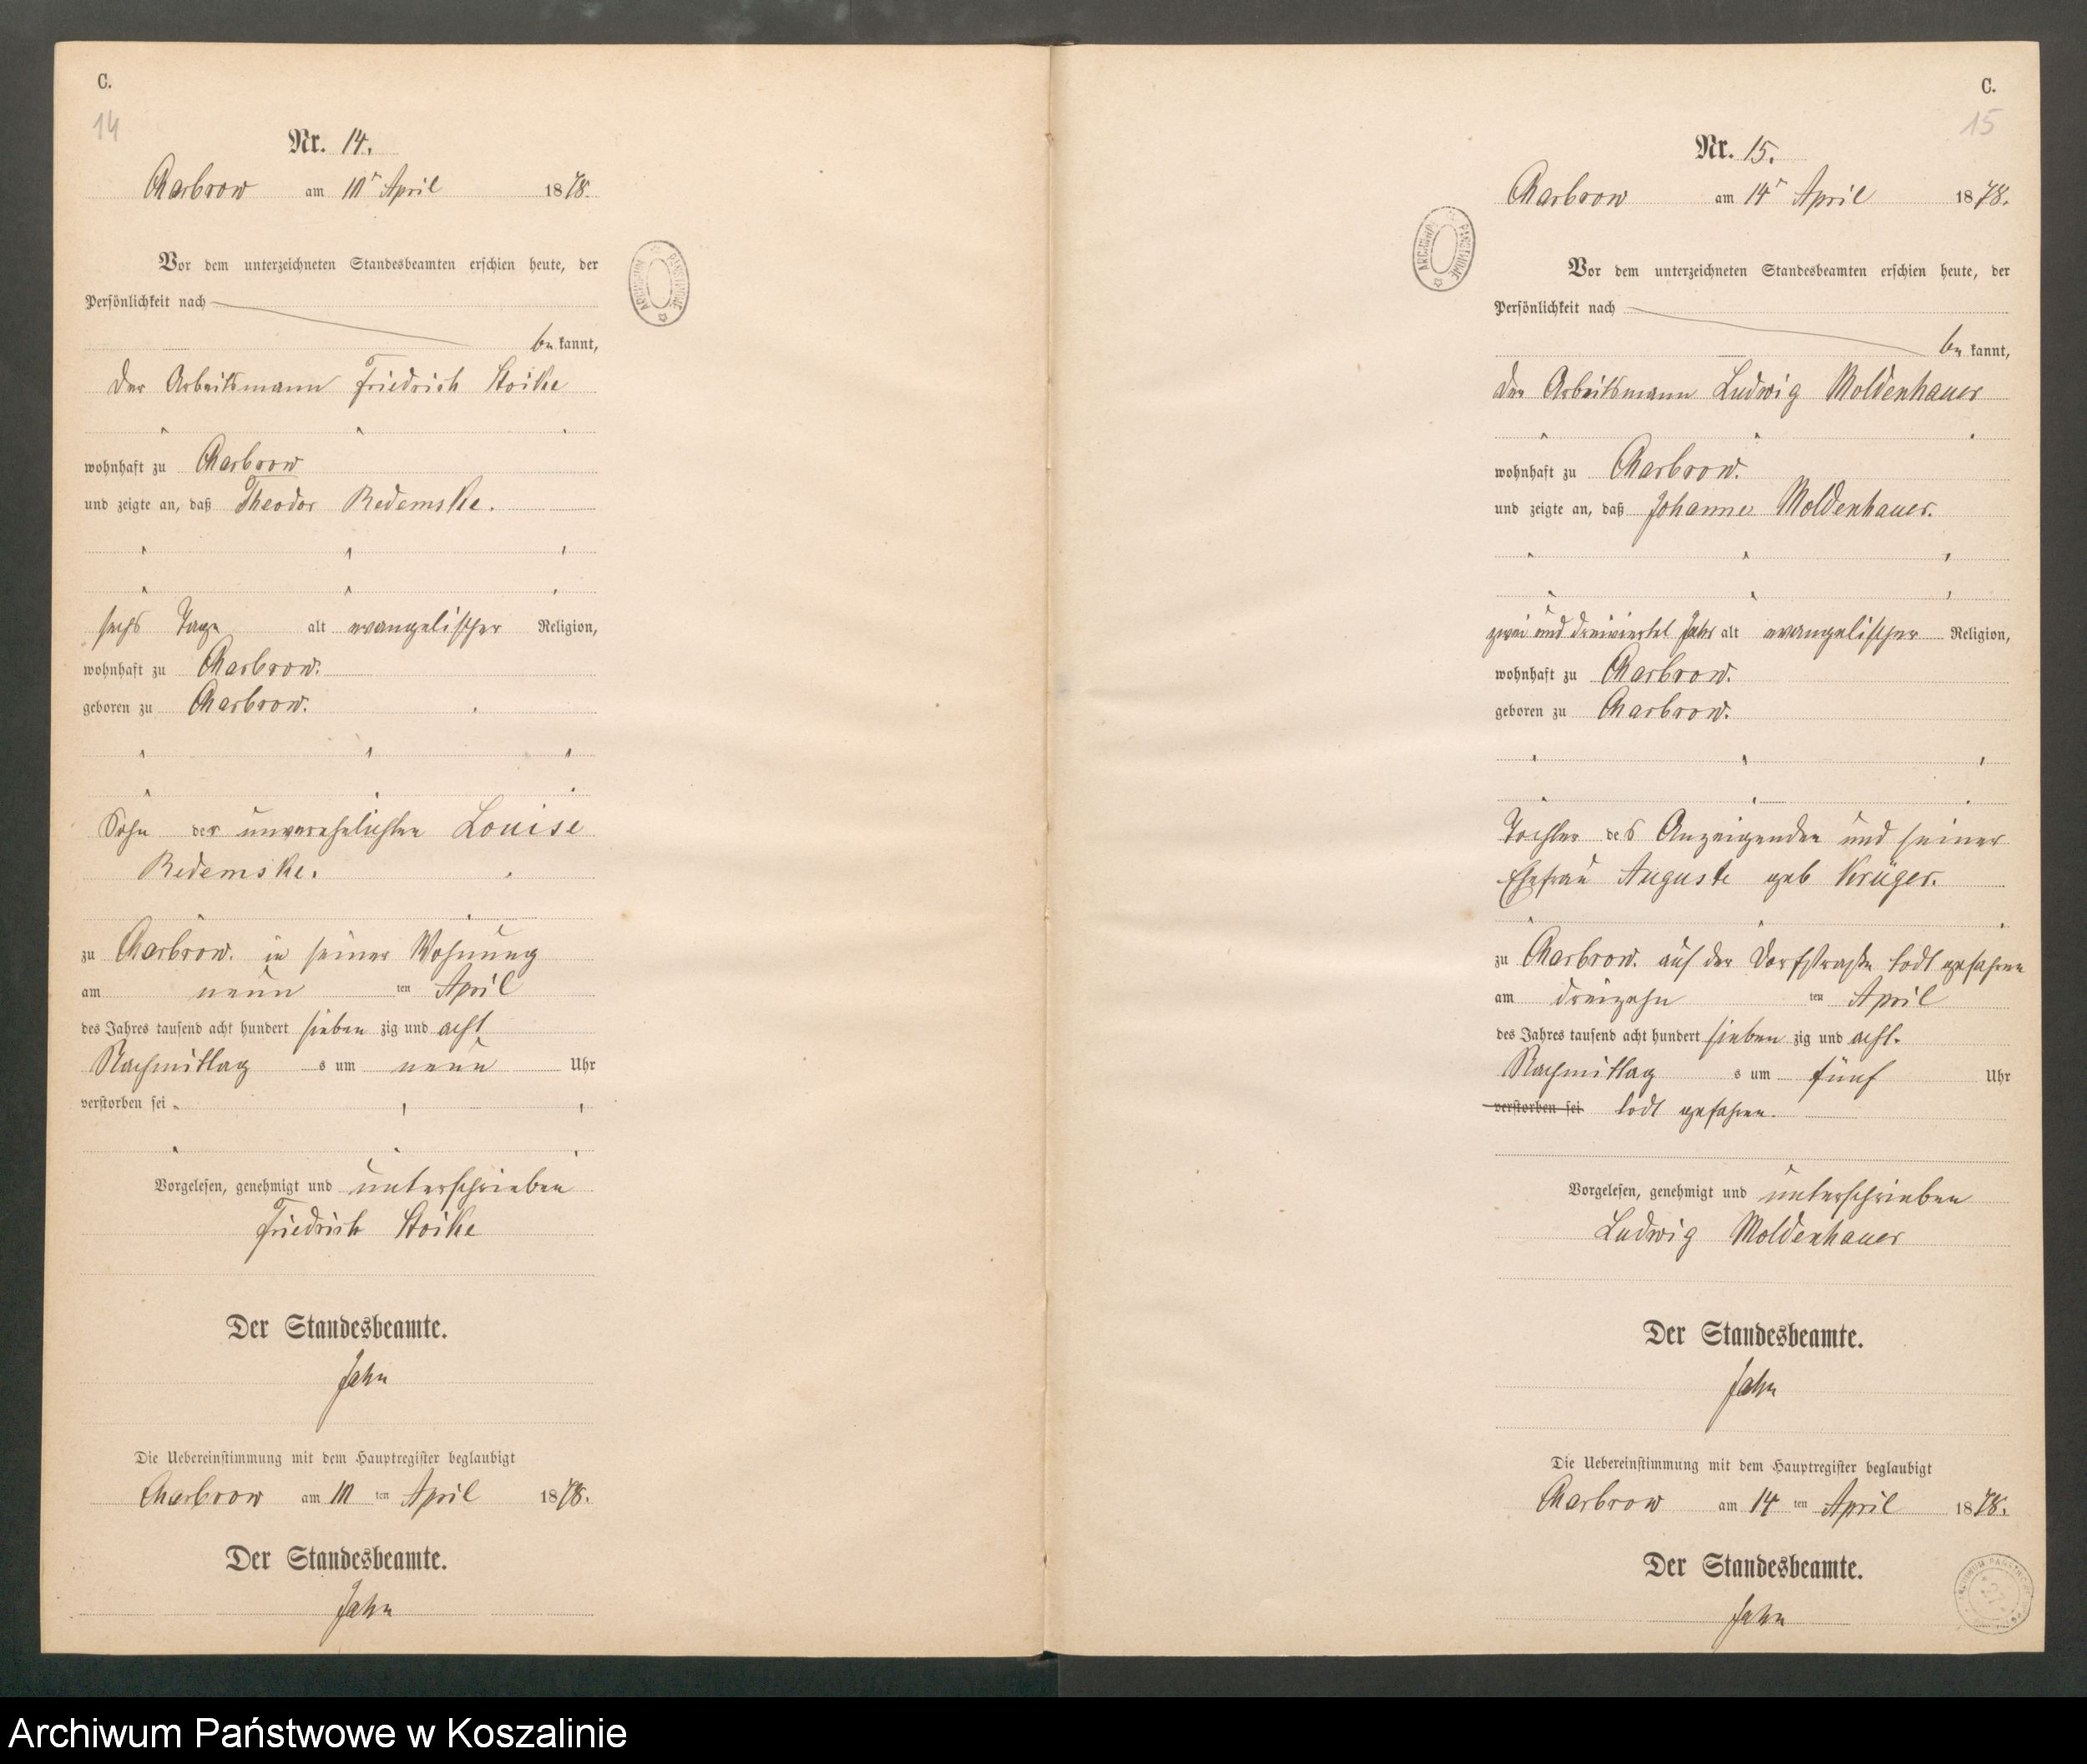 C.
14
Nr. 14.
Charbrow am 10ᵗ April 1878.
Vor dem unterzeichneten Standesbeamten erschien heute, der
Persönlichkeit nach
be kannt,
der Arbeitsmann Friedrich Stoike
wohnhaft zu Charbrow
und zeigte an, daß Theodor Redemske.
sechs Tage alt evangelischer Religion,
wohnhaft zu Charbrow.
geboren zu Charbrow.
Sohn der unverehelichten Louise
Redemske.
zu Charbrow. in seiner Wohnung
am neun ten April
des Jahres tausend acht hundert sieben zig und acht
Nachmittag s um neun Uhr
verstorben sei
Vorgelesen, genehmigt und unterschrieben
Friedrich Stoike
Der Standesbeamte.
Jahn
Die Uebereinstimmung mit dem Hauptregister beglaubigt
Charbrow am 10 ten April 1878.
Der Standesbeamte.
Jahn
ARCHIWUM PAŃSTWOWE
C.
15
Nr. 15.
Charbrow am 14ᵗ April 1878.
Vor dem unterzeichneten Standesbeamten erschien heute, der
Persönlichkeit nach
be kannt,
der Arbeitsmann Ludwig Moldenhauer
wohnhaft zu Charbrow.
und zeigte an, daß Johanne Moldenhauer.
zwei und dreiviertel Jahr alt evangelischer Religion,
wohnhaft zu Charbrow.
geboren zu Charbrow.
Tochter des Anzeigenden und seiner
Ehefrau Auguste geb Krüger.
zu Charbrow. auf der Dorfstraße todt gefahren
am dreizehn ten April
des Jahres tausend acht hundert sieben zig und acht.
Nachmittag s um fünf Uhr
verstorben sei todt gefahren.
Vorgelesen, genehmigt und unterschrieben
Ludwig Moldenhauer
Der Standesbeamte.
Jahn
Die Uebereinstimmung mit dem Hauptregister beglaubigt
Charbrow am 14 ten April 1878.
Der Standesbeamte.
Jahn
ARCHIWUM PAŃSTWOWE
Archiwum Państwowe w Koszalinie